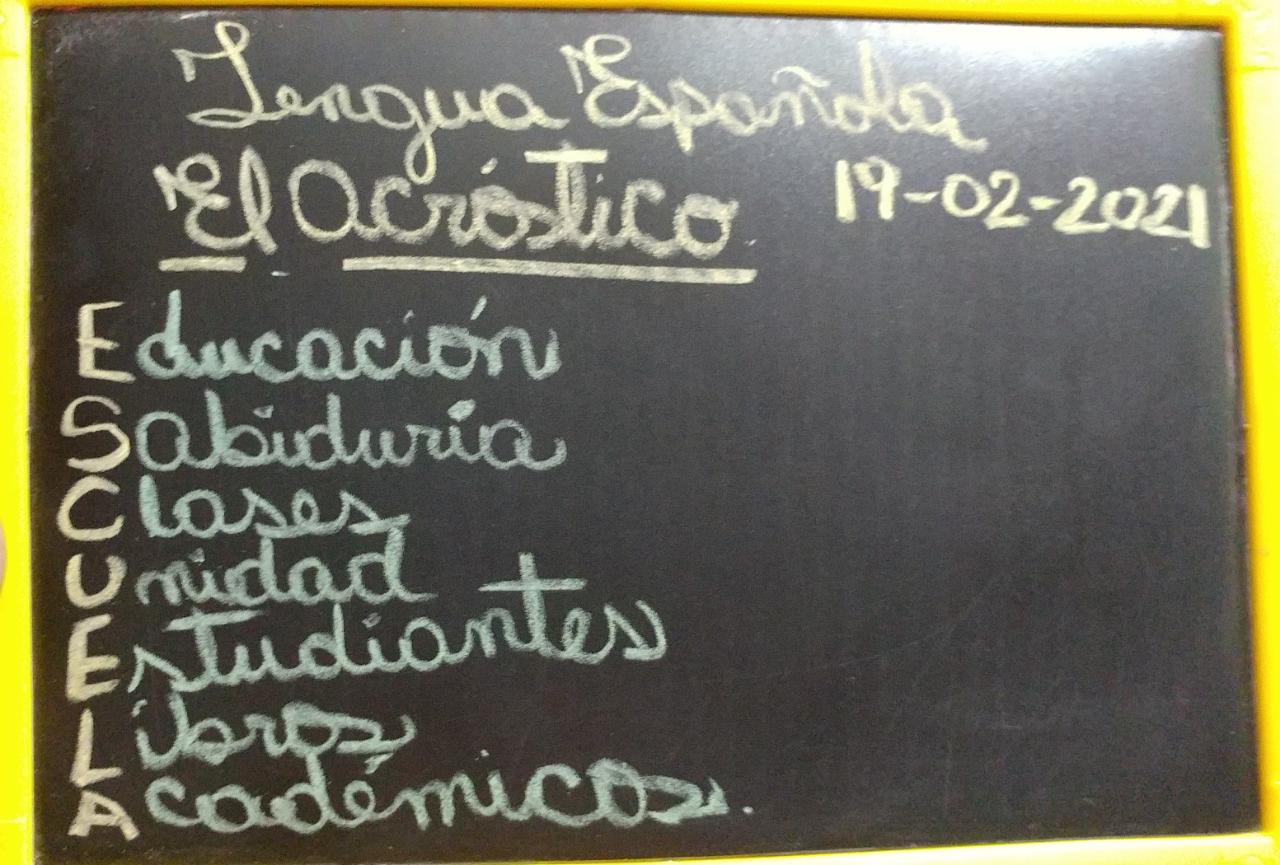 Lengua Española
El Acróstico 19-02-2021
Educación
Sabiduría
Clases
Unidad
Estudiantes
Libros
Académicos.